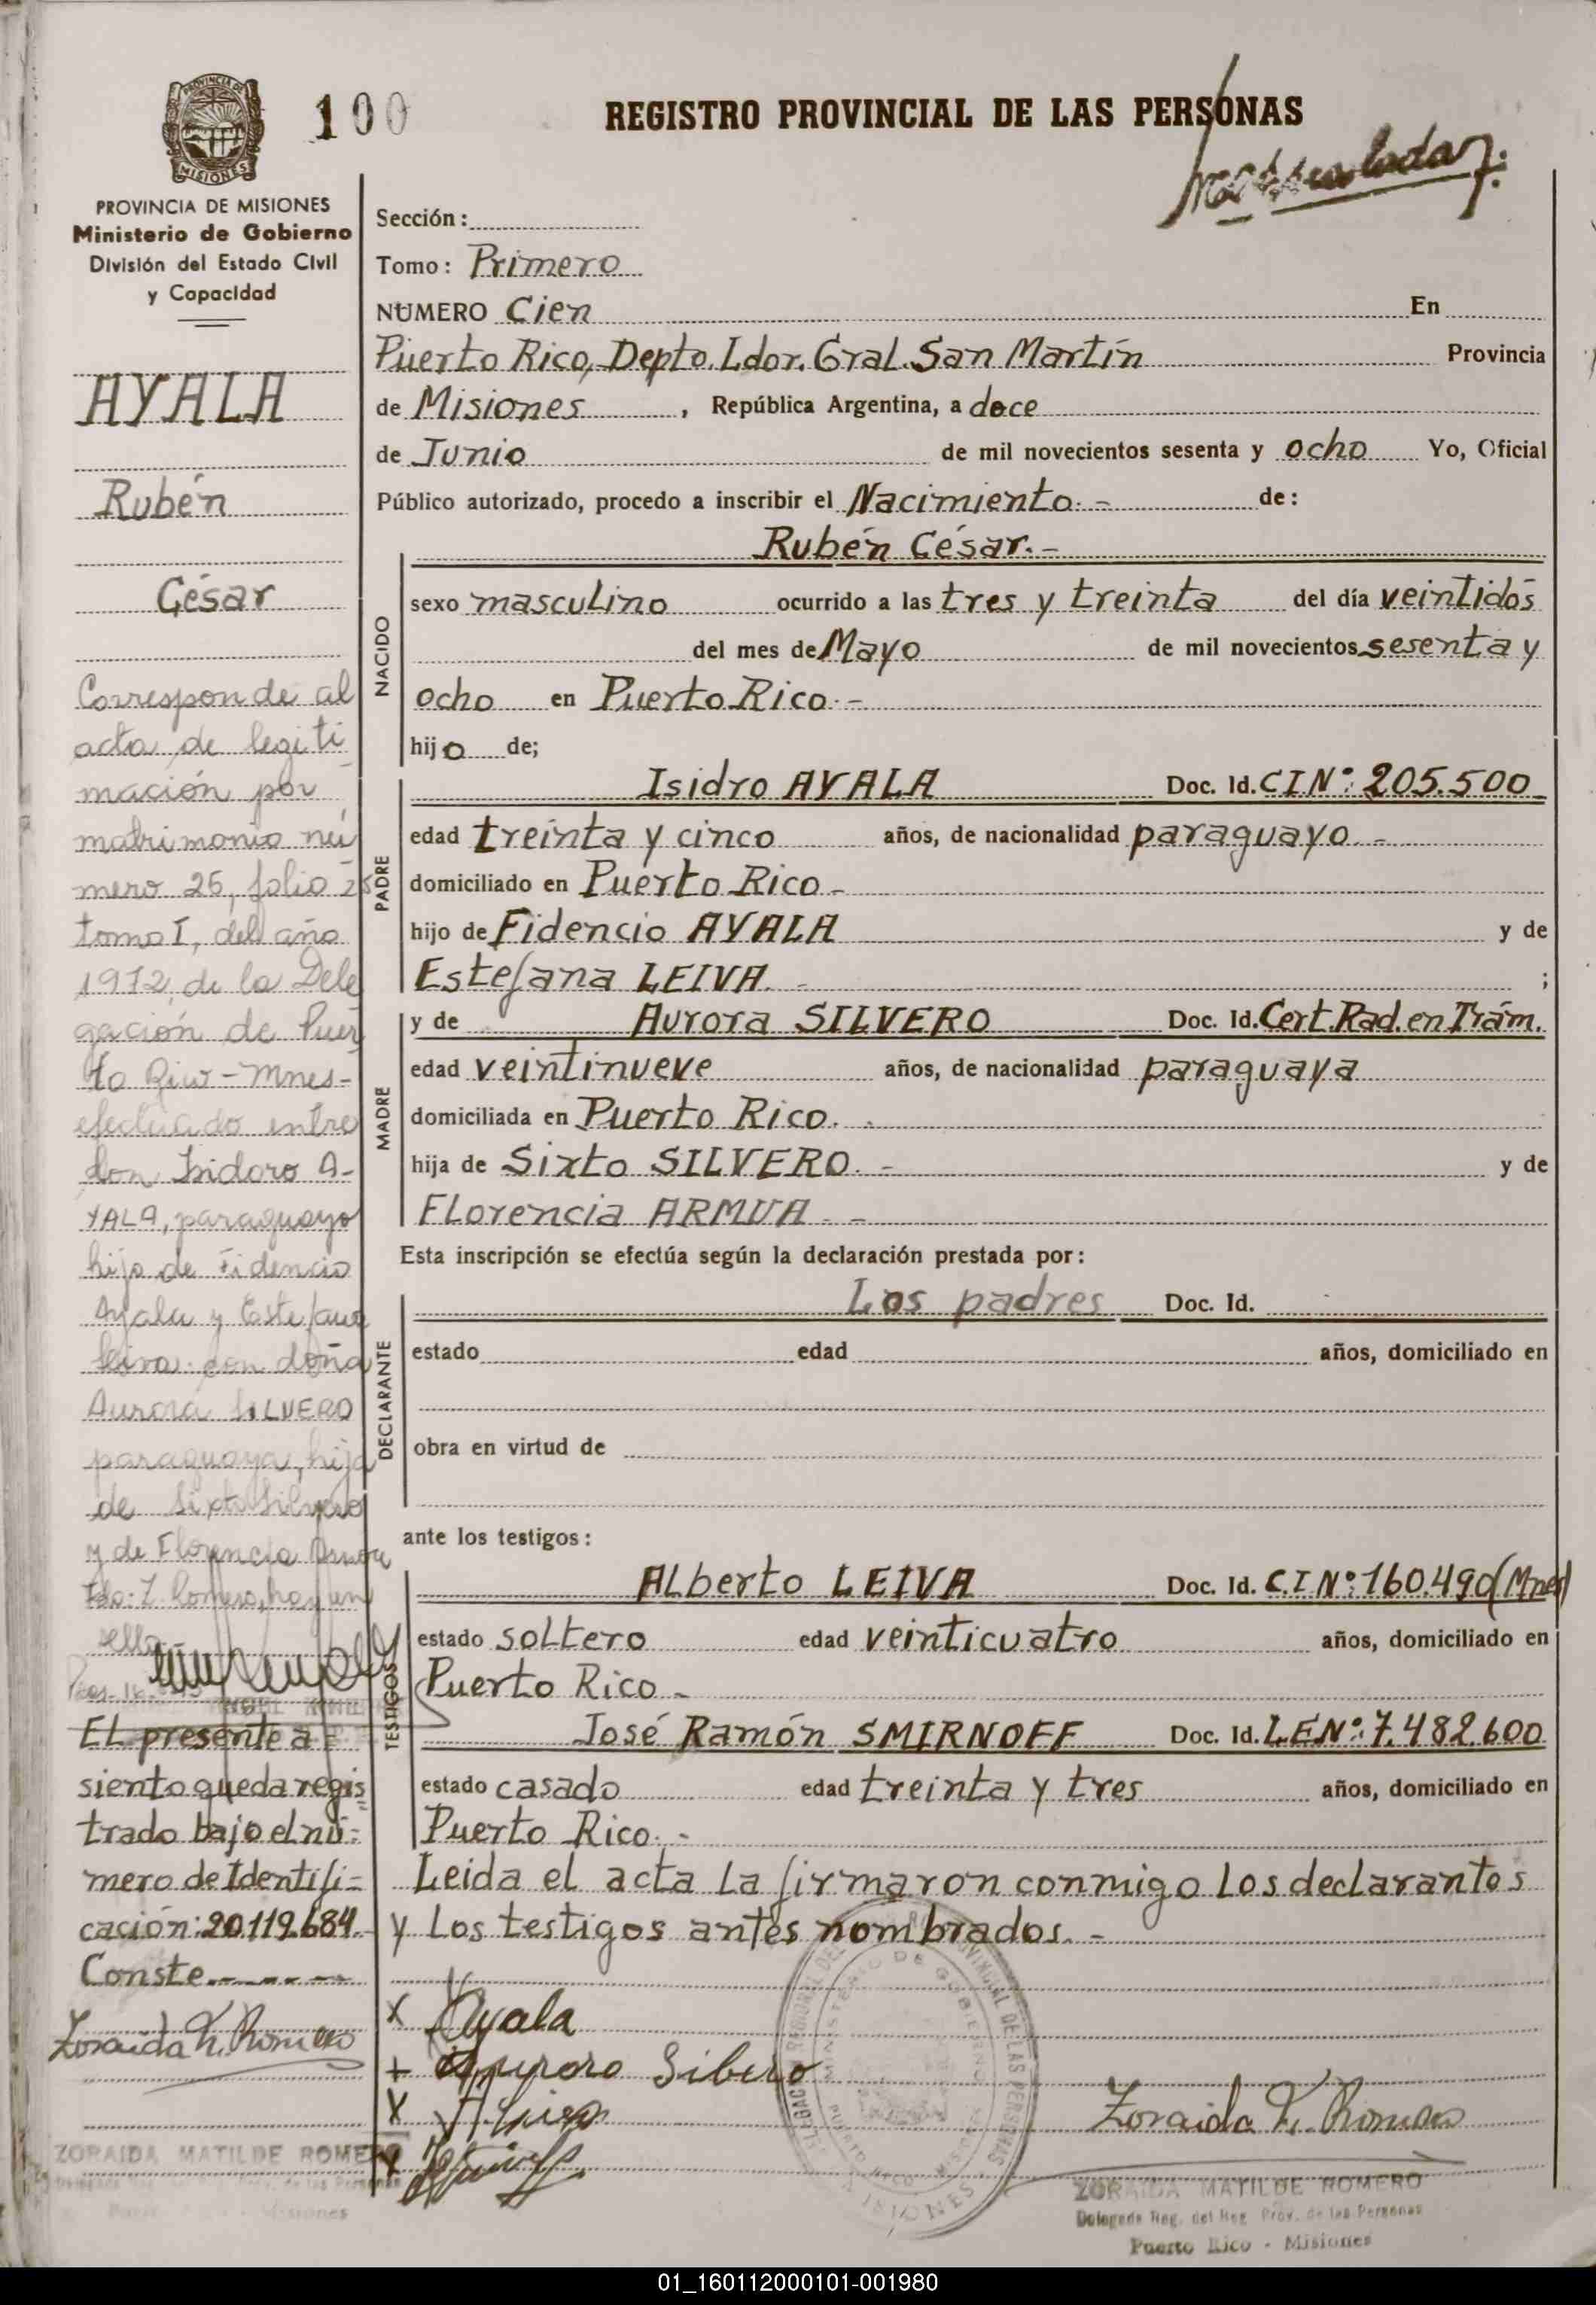 100
REGISTRO PROVINCIAL DE LAS PERSONAS
PROVINCIA DE
MISIONES
PROVINCIA DE MISIONES
Ministerio de Gobierno
División del Estado Civil
y Capacidad
AYALA
Rubén
César
Corresponde al
acta de legiti
mación por
matrimonio nú
mero 25, folio 25
tomo I, del año
1972, de la Dele
gación de Puer
to Rico - Mnes-
efectuado entre
don Isidoro A-
YALA, paraguayo
hijo de Fidencio
Ayala y Estefana
Leiva con doña
Aurora SILVERO
paraguaya, hija
de Sixto Silvero
y de Florencia Armoa
Fdo: Z. Romero, hay un
sello
El presente a
siento queda regis
trado bajo el nú-
mero de Identifi-
cación: 20.119.684.-
Conste.- - - - -
Zoraida M. Romero
ZORAIDA MATILDE ROMERO
Sección:
Tomo: Primero
NUMERO Cien En
Puerto Rico, Depto. Ldor. Gral. San Martín Provincia
de Misiones , República Argentina, a doce
de Junio de mil novecientos sesenta y ocho Yo, Oficial
Público autorizado, procedo a inscribir el Nacimiento.- de:
Rubén César.-
NACIDO
sexo masculino ocurrido a las tres y treinta del día veintidós
del mes de Mayo de mil novecientos sesenta y
ocho en Puerto Rico.-
hijo de;
PADRE
Isidro AYALA Doc. Id. CI Nº: 205.500
edad treinta y cinco años, de nacionalidad paraguayo.-
domiciliado en Puerto Rico-
hijo de Fidencio AYALA y de
Estefana LEIVA. - ;
MADRE
y de Aurora SILVERO Doc. Id. Cert. Rad. en Trám.
edad veintinueve años, de nacionalidad paraguaya
domiciliada en Puerto Rico. .
hija de Sixto SILVERO. - y de
Florencia ARMUA. -
Esta inscripción se efectúa según la declaración prestada por:
DECLARANTE
Los padres Doc. Id.
estado edad años, domiciliado en
obra en virtud de
ante los testigos:
TESTIGOS
Alberto LEIVA Doc. Id. C.I Nº: 160.490 (Mnes)
estado soltero edad veinticuatro años, domiciliado en
Puerto Rico -
José Ramón SMIRNOFF Doc. Id. LE Nº: 7.482.600
estado casado edad treinta y tres años, domiciliado en
Puerto Rico. -
Leida el acta la firmaron conmigo los declarantes
y los testigos antes nombrados. -
X Ayala
+ Aurora Silvero
X
X
Zoraida M. Romero
ZORAIDA MATILDE ROMERO
Delegada Reg. del Reg. Prov. de las Personas
Puerto Rico - Misiones
01_160112000101-001980